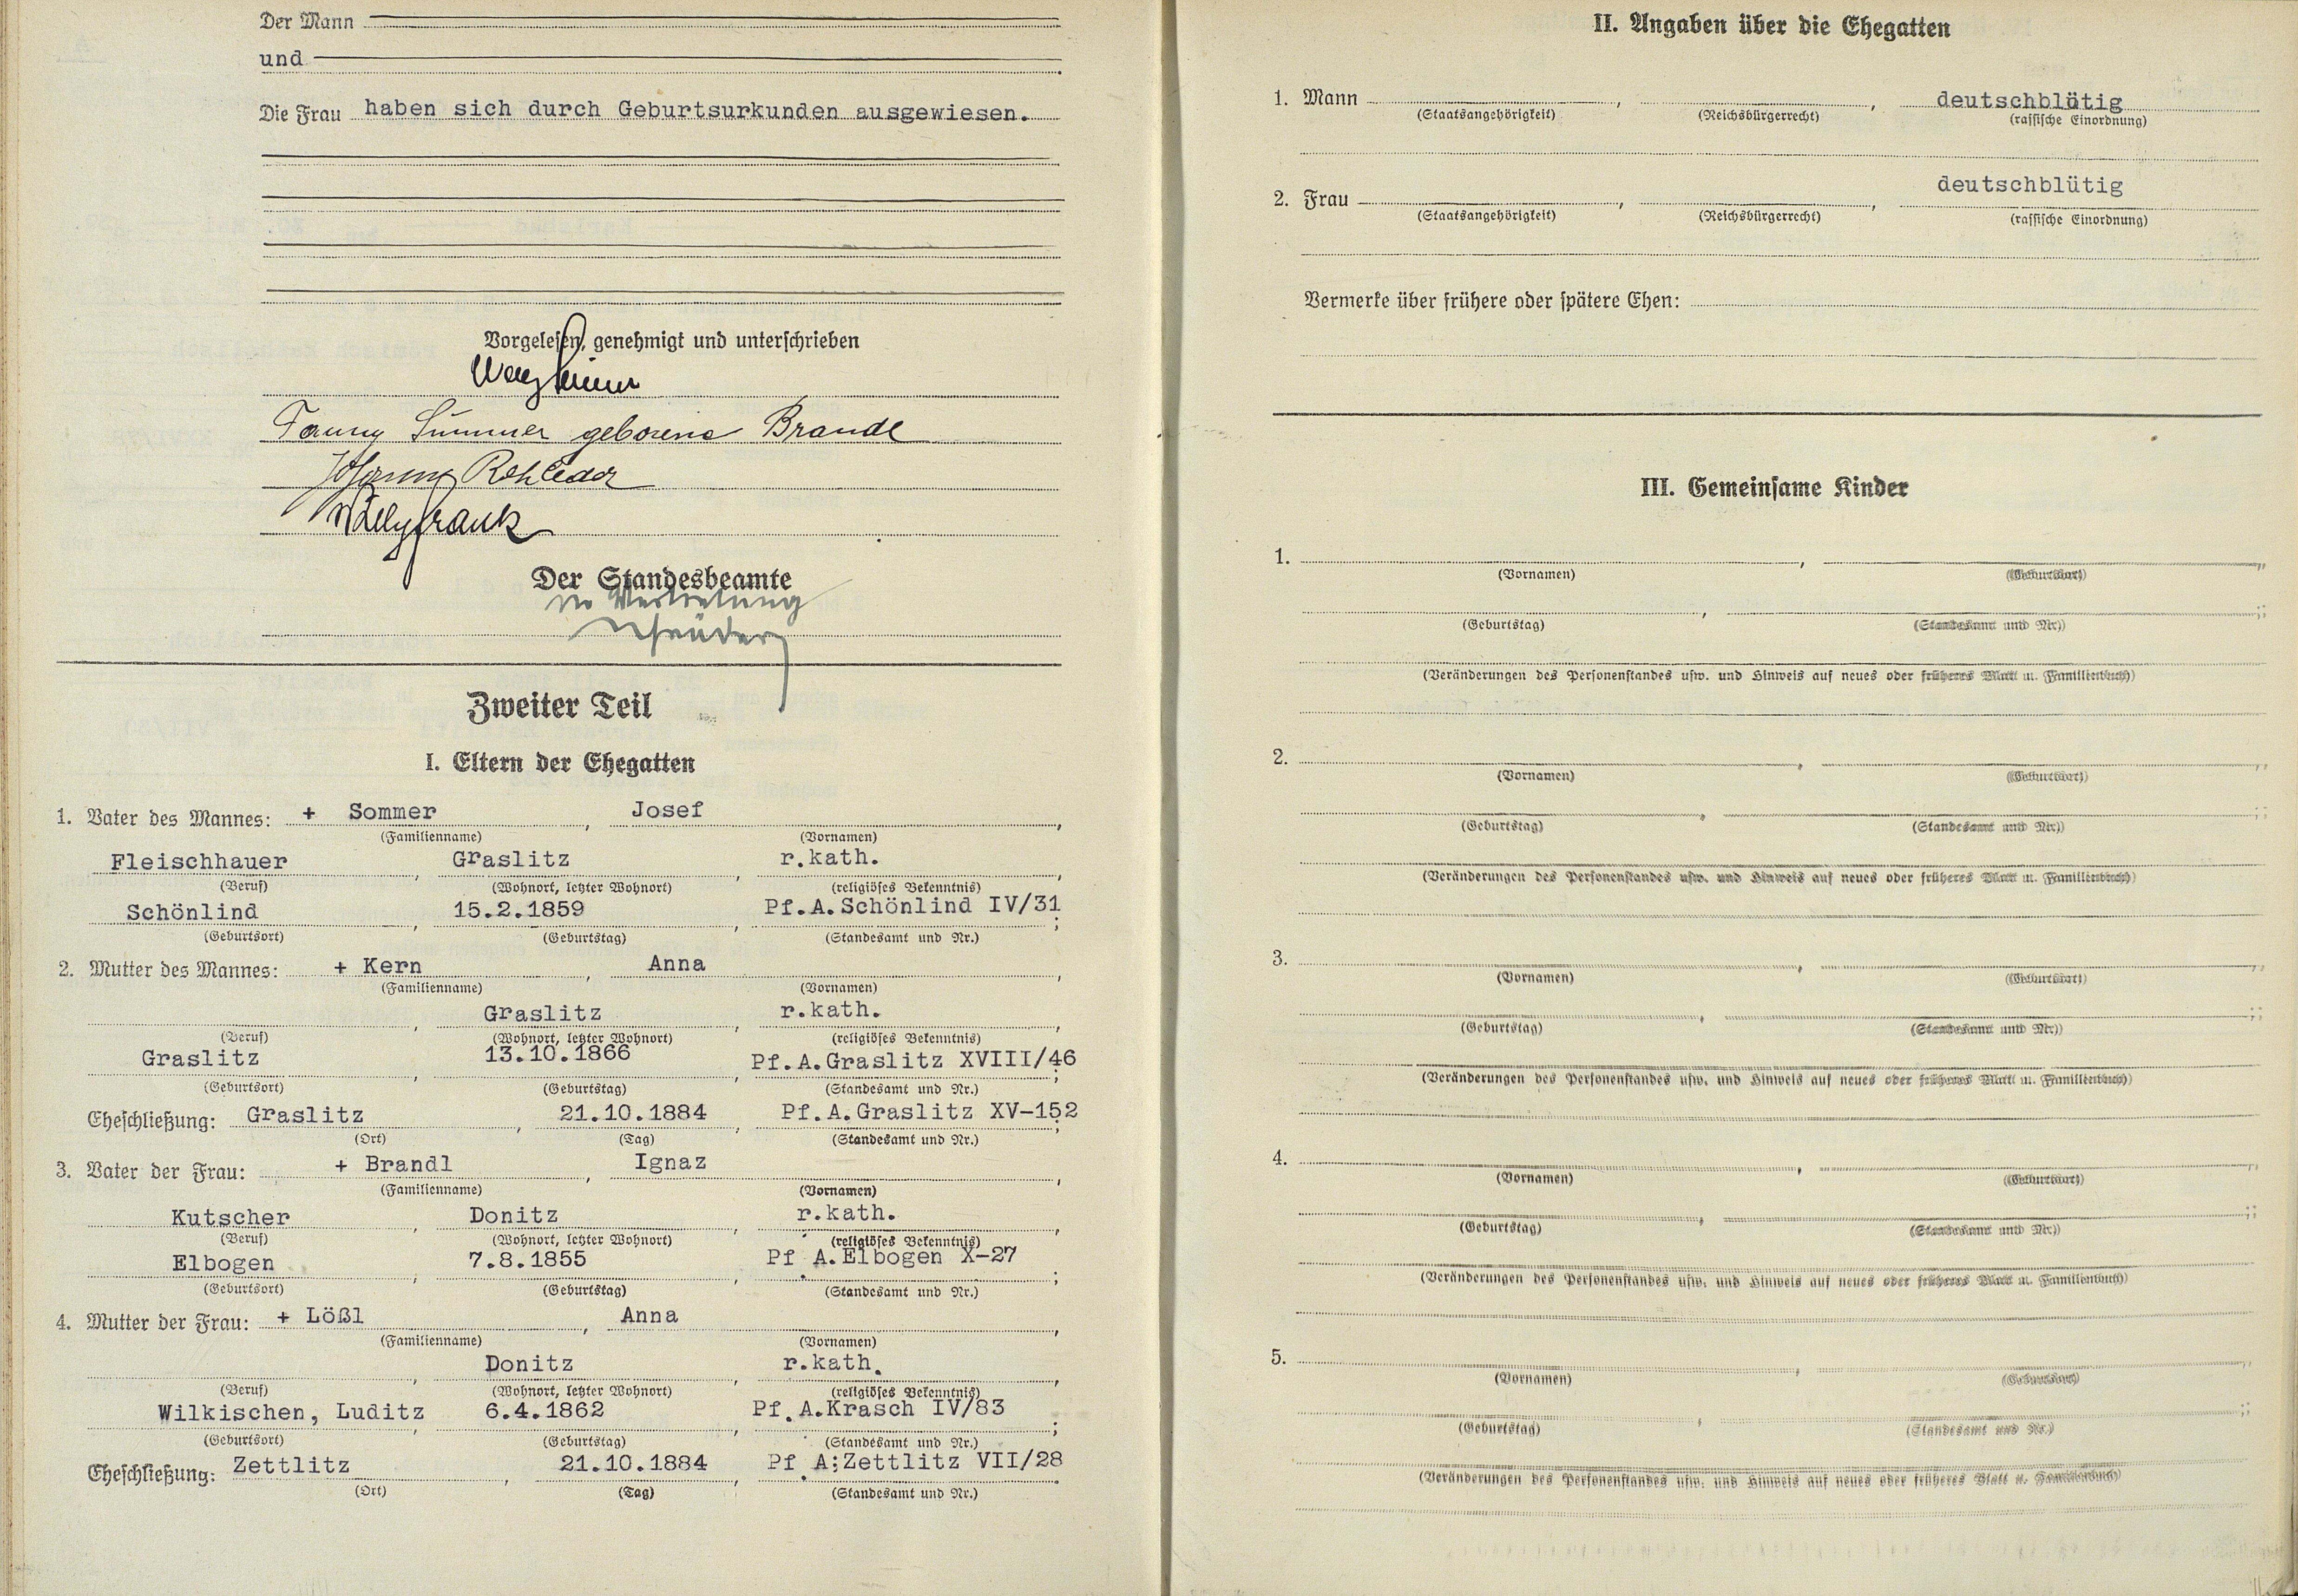 Der Mann
und
Die Frau haben sich durch Geburtsurkunden ausgewiesen.
Vorgelesen, genehmigt und unterschrieben
Fanny Summer geborene Brandl
Rohleder
Willy Frank
Der Standesbeamte
in Vertretung
Zweiter Teil
I. Eltern der Ehegatten
1. Vater des Mannes: + Sommer , Josef ,
(Familienname) (Vornamen)
Fleischhauer , Graslitz , r.kath. ,
(Beruf) (Wohnort, letzter Wohnort) (religiöses Bekenntnis)
Schönlind , 15.2.1859 , Pf.A.Schönlind IV/31 ;
(Geburtsort) (Geburtstag) (Standesamt und Nr.)
2. Mutter des Mannes: + Kern , Anna ,
(Familienname) (Vornamen)
, Graslitz , r.kath. ,
(Beruf) (Wohnort, letzter Wohnort) (religiöses Bekenntnis)
Graslitz , 13.10.1866 , Pf.A.Graslitz XVIII/46 ;
(Geburtsort) (Geburtstag) (Standesamt und Nr.)
Eheschließung: Graslitz , 21.10.1884 , Pf.A.Graslitz XV-152 ;
(Ort) (Tag) (Standesamt und Nr.)
3. Vater der Frau: + Brandl , Ignaz ,
(Familienname) (Vornamen)
Kutscher , Donitz , r.kath. ,
(Beruf) (Wohnort, letzter Wohnort) (religiöses Bekenntnis)
Elbogen , 7.8.1855 , Pf.A.Elbogen X-27 ;
(Geburtsort) (Geburtstag) (Standesamt und Nr.)
4. Mutter der Frau: + Lößl , Anna ,
(Familienname) (Vornamen)
, Donitz , r.kath. ,
(Beruf) (Wohnort, letzter Wohnort) (religiöses Bekenntnis)
Wilkischen, Luditz , 6.4.1862 , Pf.A.Krasch IV/83 ;
(Geburtsort) (Geburtstag) (Standesamt und Nr.)
Eheschließung: Zettlitz , 21.10.1884 , Pf.A:Zettlitz VII/28 .
(Ort) (Tag) (Standesamt und Nr.)
II. Angaben über die Ehegatten
1. Mann , , deutschblütig
(Staatsangehörigkeit) (Reichsbürgerrecht) (rassische Einordnung)
2. Frau , , deutschblütig
(Staatsangehörigkeit) (Reichsbürgerrecht) (rassische Einordnung)
Vermerke über frühere oder spätere Ehen:
III. Gemeinsame Kinder
1. , ,
(Vornamen) (Geburtsort)
, ;
(Geburtstag) (Standesamt und Nr.)
(Veränderungen des Personenstandes usw. und Hinweis auf neues oder früheres Blatt u. Familienbuch)
2. , ,
(Vornamen) (Geburtsort)
, ;
(Geburtstag) (Standesamt und Nr.)
(Veränderungen des Personenstandes usw. und Hinweis auf neues oder früheres Blatt u. Familienbuch)
3. , ,
(Vornamen) (Geburtsort)
, ;
(Geburtstag) (Standesamt und Nr.)
(Veränderungen des Personenstandes usw. und Hinweis auf neues oder früheres Blatt u. Familienbuch)
4. , ,
(Vornamen) (Geburtsort)
, ;
(Geburtstag) (Standesamt und Nr.)
(Veränderungen des Personenstandes usw. und Hinweis auf neues oder früheres Blatt u. Familienbuch)
5. , ,
(Vornamen) (Geburtsort)
, ;
(Geburtstag) (Standesamt und Nr.)
(Veränderungen des Personenstandes usw. und Hinweis auf neues oder früheres Blatt u. Familienbuch)